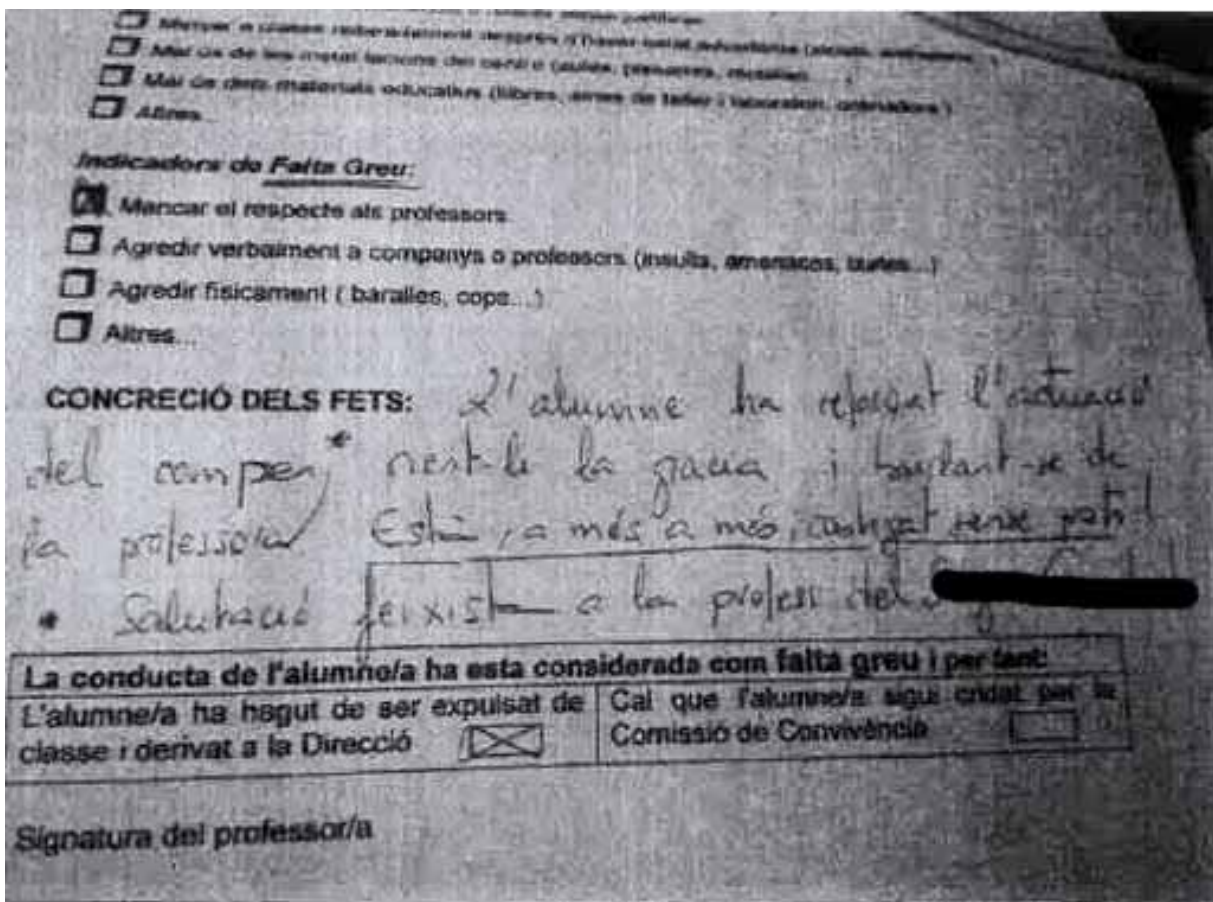 Mal ús de les instal·lacions del centre (aules,
Mal ús dels materials educatius (llibres, eines de taller i laboratori, ordinadors)
Altres...
Indicadors de Falta Greu:
Mancar el respecte als professors
Agredir verbalment a companys o professors (insults, amenaces, burles...)
Agredir físicament ( baralles, cops...)
Altres...
CONCRECIÓ DELS FETS: L'alumne ha reforçat l'actuació
del company* rient-li la gràcia i burlant-se de
la professora Està, a més a més, castigat sense pati!
* Salutació feixista a la profess del
La conducta de l'alumne/a ha esta considerada com falta greu i per tant:
L'alumne/a ha hagut de ser expulsat de
classe i derivat a la Direcció
Cal que l'alumne/a sigui cridat per la
Comissió de Convivència
Signatura del professor/a